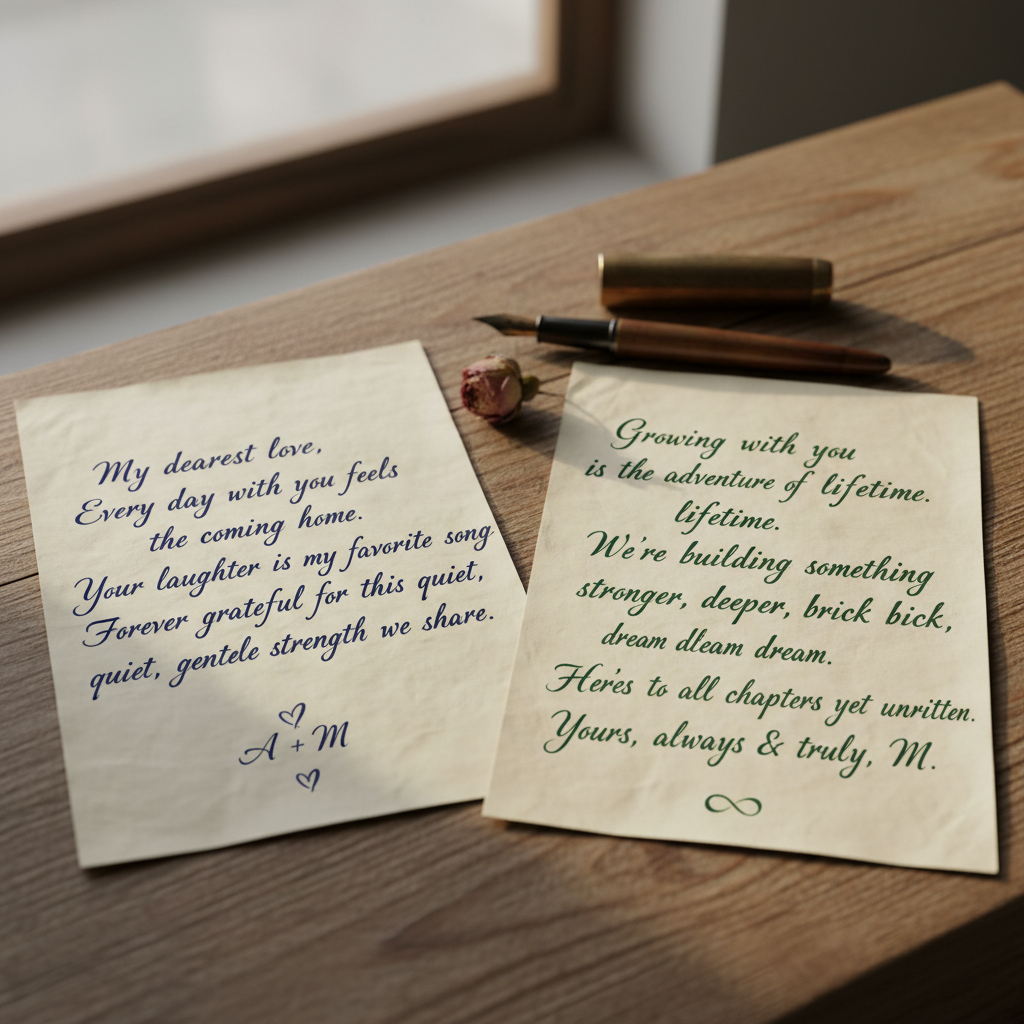 My dearest love,
Every day with you feels
the coming home.
Your laughter is my favorite song
Forever grateful for this quiet,
quiet, gentele strength we share.
A + M
Growing with you
is the adventure of lifetime.
lifetime.
We're building something
stronger, deeper, brick bick,
dream dleam dream.
Her'es to all chapters yet unritten.
Yours, always & truly, M.